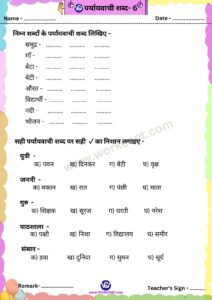 पर्यायवाची शब्द- 6
Name - .................... Date - ....................
निम्न शब्दों के पर्यायवाची शब्द लिखिए -
समुद्र - ............ ............ ............
माँ - ............ ............ ............
बेटा - ............ ............ ............
बेटी - ............ ............ ............
औरत - ............ ............ ............
विद्यार्थी - ............ ............ ............
नदी - ............ ............ ............
भोजन - ............ ............ ............
सही पर्यायवाची शब्द पर सही ✓ का निशान लगाइए -
पुत्री -
क) पवन ख) दिनकर ग) बेटी घ) वृक्ष
जननी -
क) मकान ख) रात ग) पंछी घ) माता
गुरु -
क) शिक्षक ख) सूरज ग) धरती घ) नरेश
पाठशाला -
क) पक्षी ख) निशा ग) विद्यालय घ) समीर
संसार -
क) हवा ख) दुनिया ग) सुमन घ) सूर्य
Remark- .................... Teacher's Sign - ....................